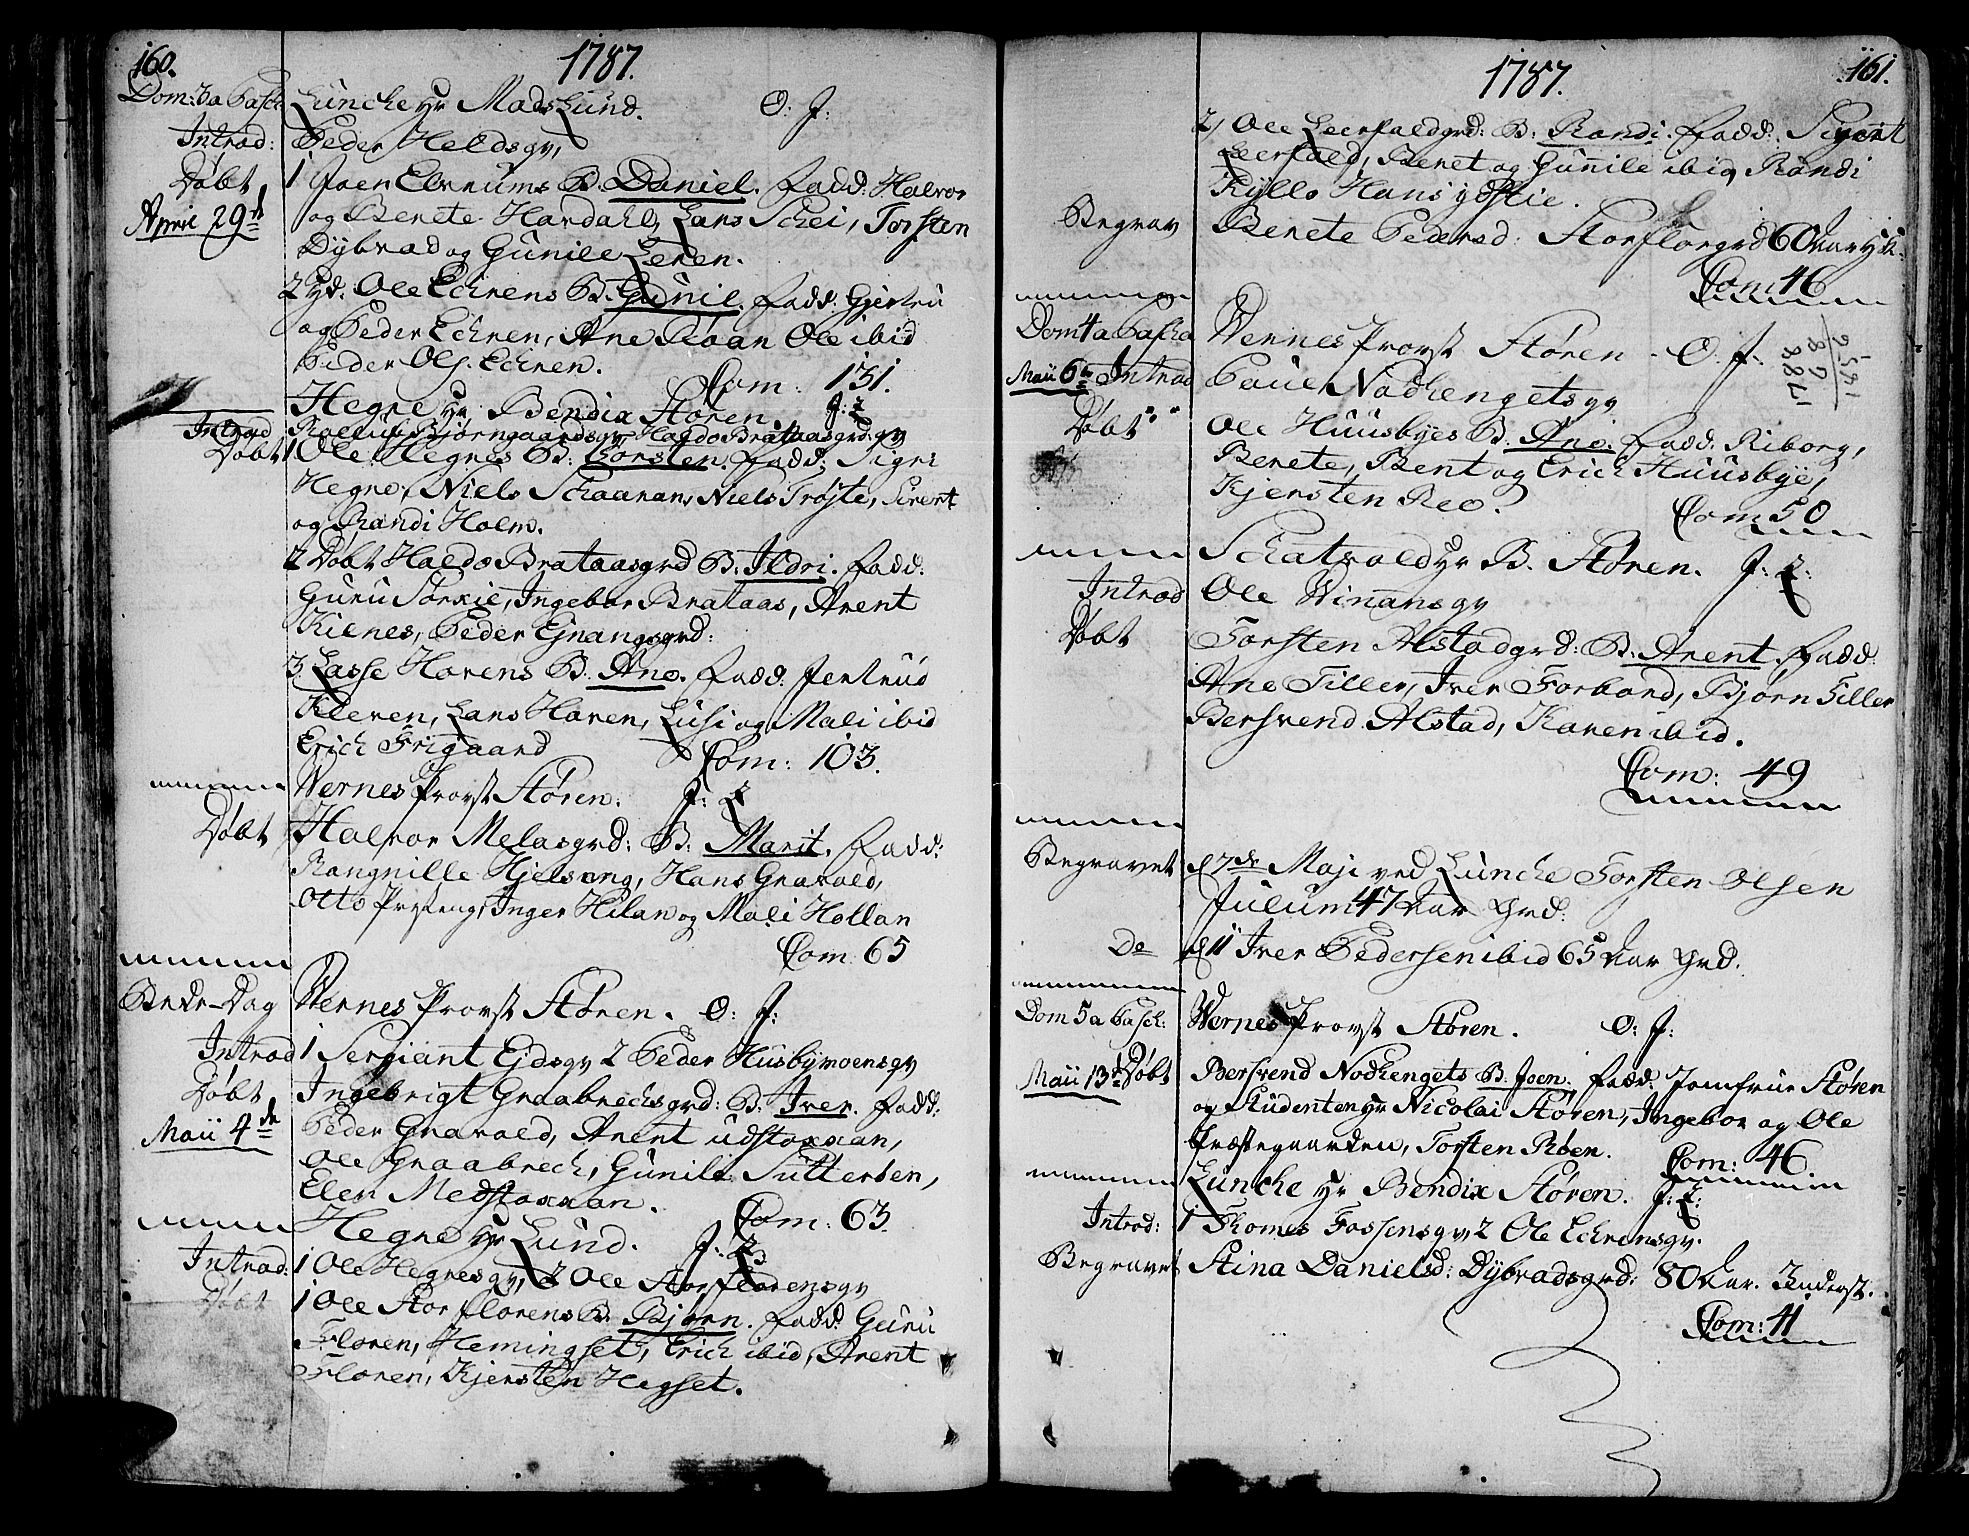 160.
1787.
Dom: 3a Pasch
Luncke Hr Mads Lund. O: f:
Introd: Peder Heldsgv,
Døbt 1 Joen Elverums B. Daniel. Fadd: Halvor
April 29de og Berete Hardahl, Lars Schei, Torsten
Dybvad og Gunile Leren.
2 Hd: Ole Echrens B. Gunil. Fadd: Gjertru
og Peder Echren, Ane Roan Ole ibid
Peder Ols. Echren. Com: 131.
Hegre Hr Bendix Støren J: Z
Introd Bjørngaardsgv, Haldo Brataasgrd:gv
Døbt 1 Ole Hegres B: Torsten. Fadd: Sigri
Hegre, Niels Schaanan, Niels Trøjte, Sivert
og Randi Holm.
2 Døbt Haldo Brataasgrd B: Ildri. Fadd:
Guru Størxie, Ingebor Brataas, Arent
Kienes, Peder Ejnangsgrd:
3 Lasse Havens B. Ane. Fadd. Jertrud
Kleven, Lars Haven, Lusi og Mali ibid
Erich Frigaard Com: 103.
Wernes Provst Støren. J: Z
Døbt Halvor Melasgrd: B: Marit. Fadd:
Rangnille Hjelseng, Hans Gravald,
Otto Prysteng, Inger Hilan og Mali Hollan
Com: 65
Bede-Dag Wernes Provst Støren. O: f:
Introd 1 Sergiant Ejdsgv 2 Peder Husbymoensgv
Døbt Ingebrigt Graabrechsgrd: B: Iver. Fadd:
Maii 4de Peder Gravald, Arent udstoxxan,
Ole Graabrech, Gunile Sutterøen,
Elen Medstoxxan. Com: 63
Hegre Hr Lund. J: Z
Introd: 1 Ole Hegresgv, 2 Ole Storflorensgv
Døbt 1 Ole Storflorens B: Bjørn. Fadd: Guru
Floren, Hemingset, Erich ibid, Arent
Floren, Kjersten Hegset.
161.
1787.
2) Ole Leerfaldgrd: B: Randi. Fadd: Sivert
Leerfald, Beret og Gunile ibid, Randi
Kyllo Hans ydstie.
Begrav Berete Pedersd: Storflorgrd 60 Aar
Com 46
Dom 4a Pascha Wernes Provst Støren - O. f:
Maii 6te Introd Paul Nadhengetsgv
Døbt Ole Huusbyes B. Ane. Fadd: Riborg,
Berete, Bent og Erich Huusbye,
Kjersten Reo. Com: 50
Schatvold Hr B. Støren. J: Z:
Introd Ole Winansgv
Døbt Torsten Alstadgrd: B: Arent. Fadd:
Ane Tiller, Iver Forbord, Bjørn Tiller
Bersvend Alstad, Karen ibid.
Com: 49
Begravet d 7de Maji ved Luncke Torsten Olsen
Julum 47 Aar Grd:
De d 11 Iver Pedersen ibid 65 Aar Grd.
Dom 5a Pasch: Wernes Provst Støren. O: f:
Maii 13de Døbt Bersvend Nodhengets B. Joen. Fadd. Jomfrue Støren
og Studenten Hr Nicolai Støren, Ingebor og Ole
Præstegaarden, Torsten Røen. Com: 46.
Luncke Hr Bendix Støren. J: Z:
Introd: 1 Thomes Fossensgv, 2 Ole Echrensgv.
Begravet Stina Danielsd: Dybvadsgrd: 80 Aar. Underst.
Com: 41